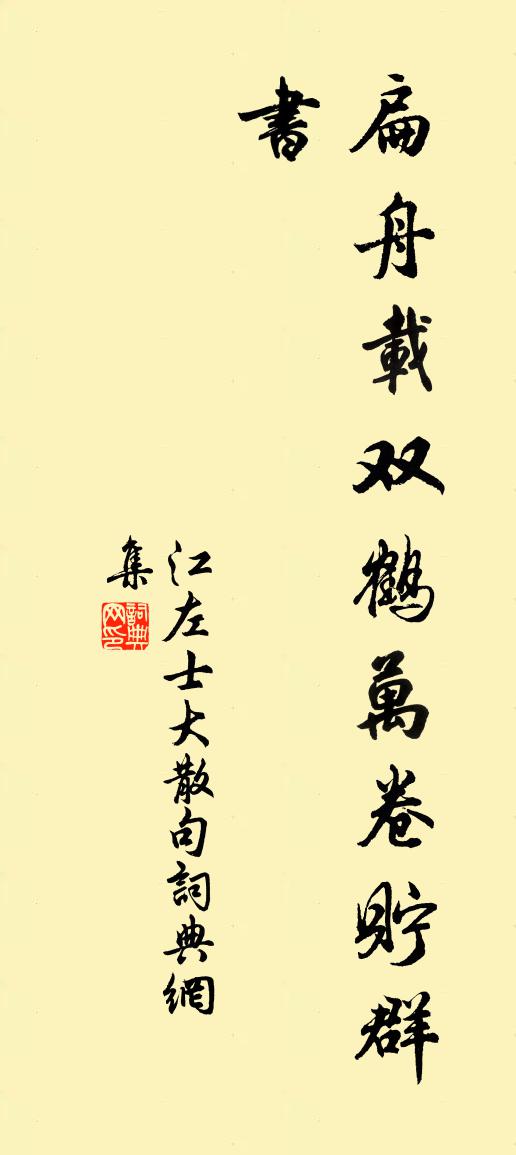 扁舟載双鶴萬卷貯群
書
江左士大散句詞典網
集
詞典
网印